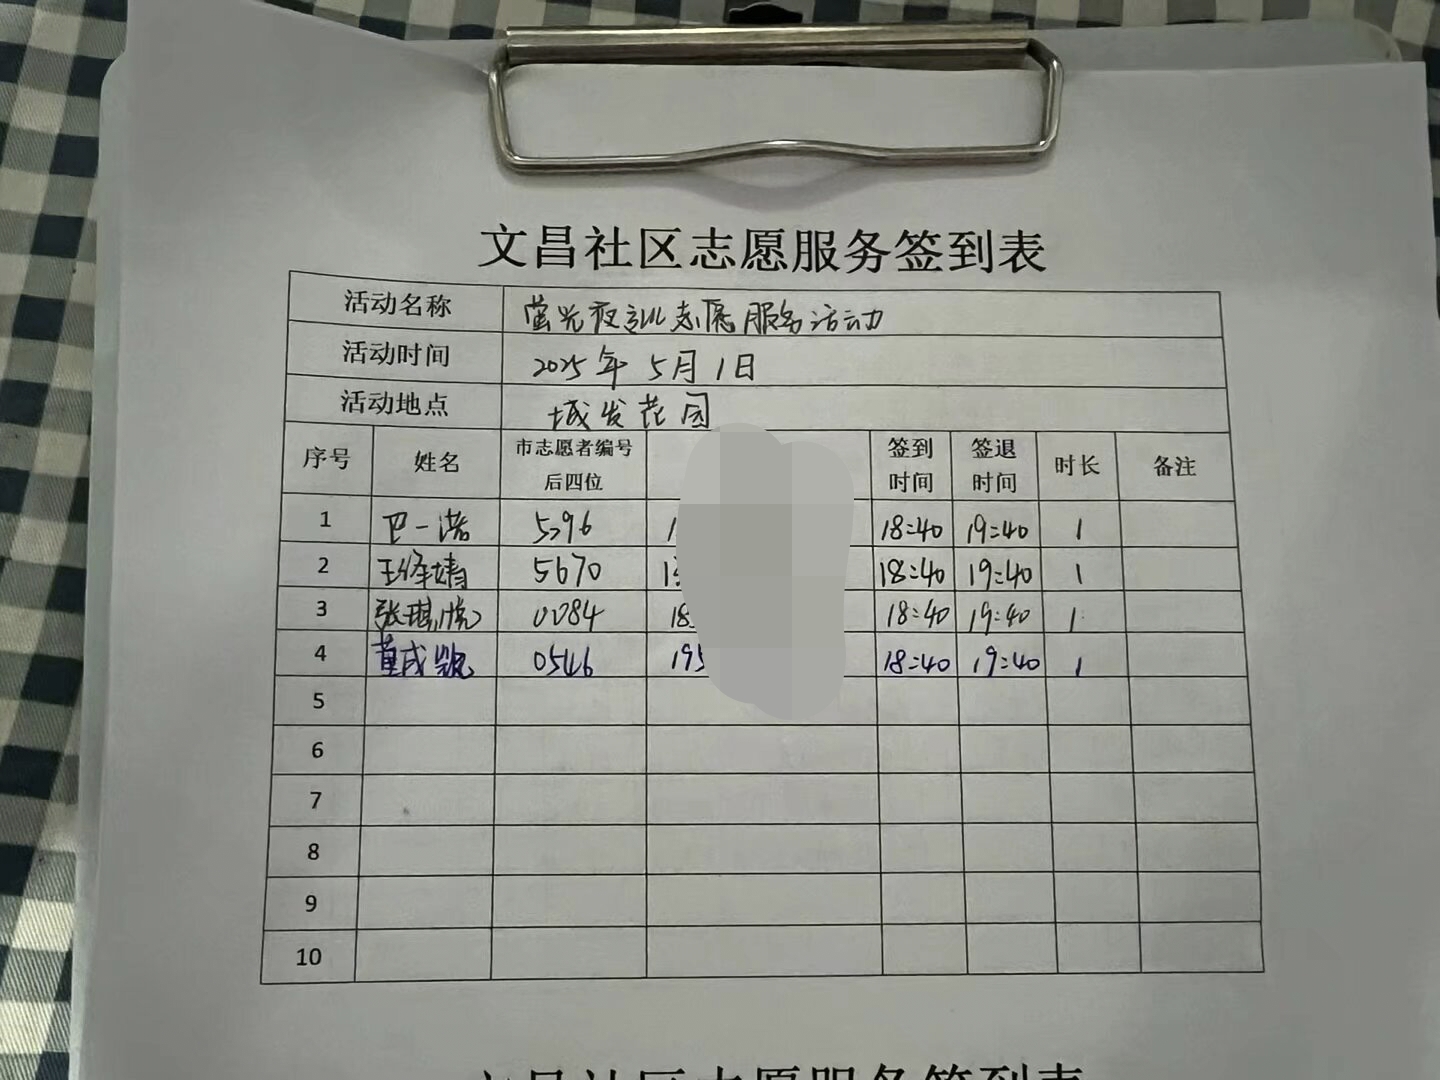 文昌社区志愿服务签到表
活动名称 萤光夜训志愿服务活动
活动时间 2025年5月1日
活动地点 城发花园
序号 姓名 市志愿者编号后四位 签到时间 签退时间 时长 备注
1 巴一诺 5296 1 18:40 19:40 1
2 王绛婧 5670 15 18:40 19:40 1
3 张琪悦 0084 18 18:40 19:40 1
4 董成凯 0546 195 18:40 19:40 1
5
6
7
8
9
10
文昌社区志愿服务签到表